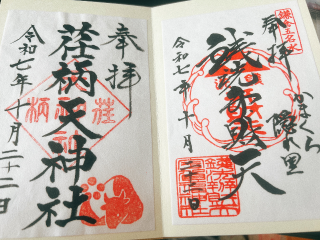 鎌倉五名水
奉拝
かまくら
隠れ里
銭洗弁財天
令和七年十月
二十二日
奉拝
荏柄天神社
荏柄
天神社
令和七年十月二十二日